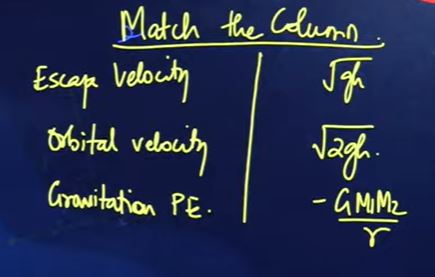 Match the Column.
Escape Velocity √gh
Orbital velocity √2gh.
Gravitation PE. - GM1M2/r